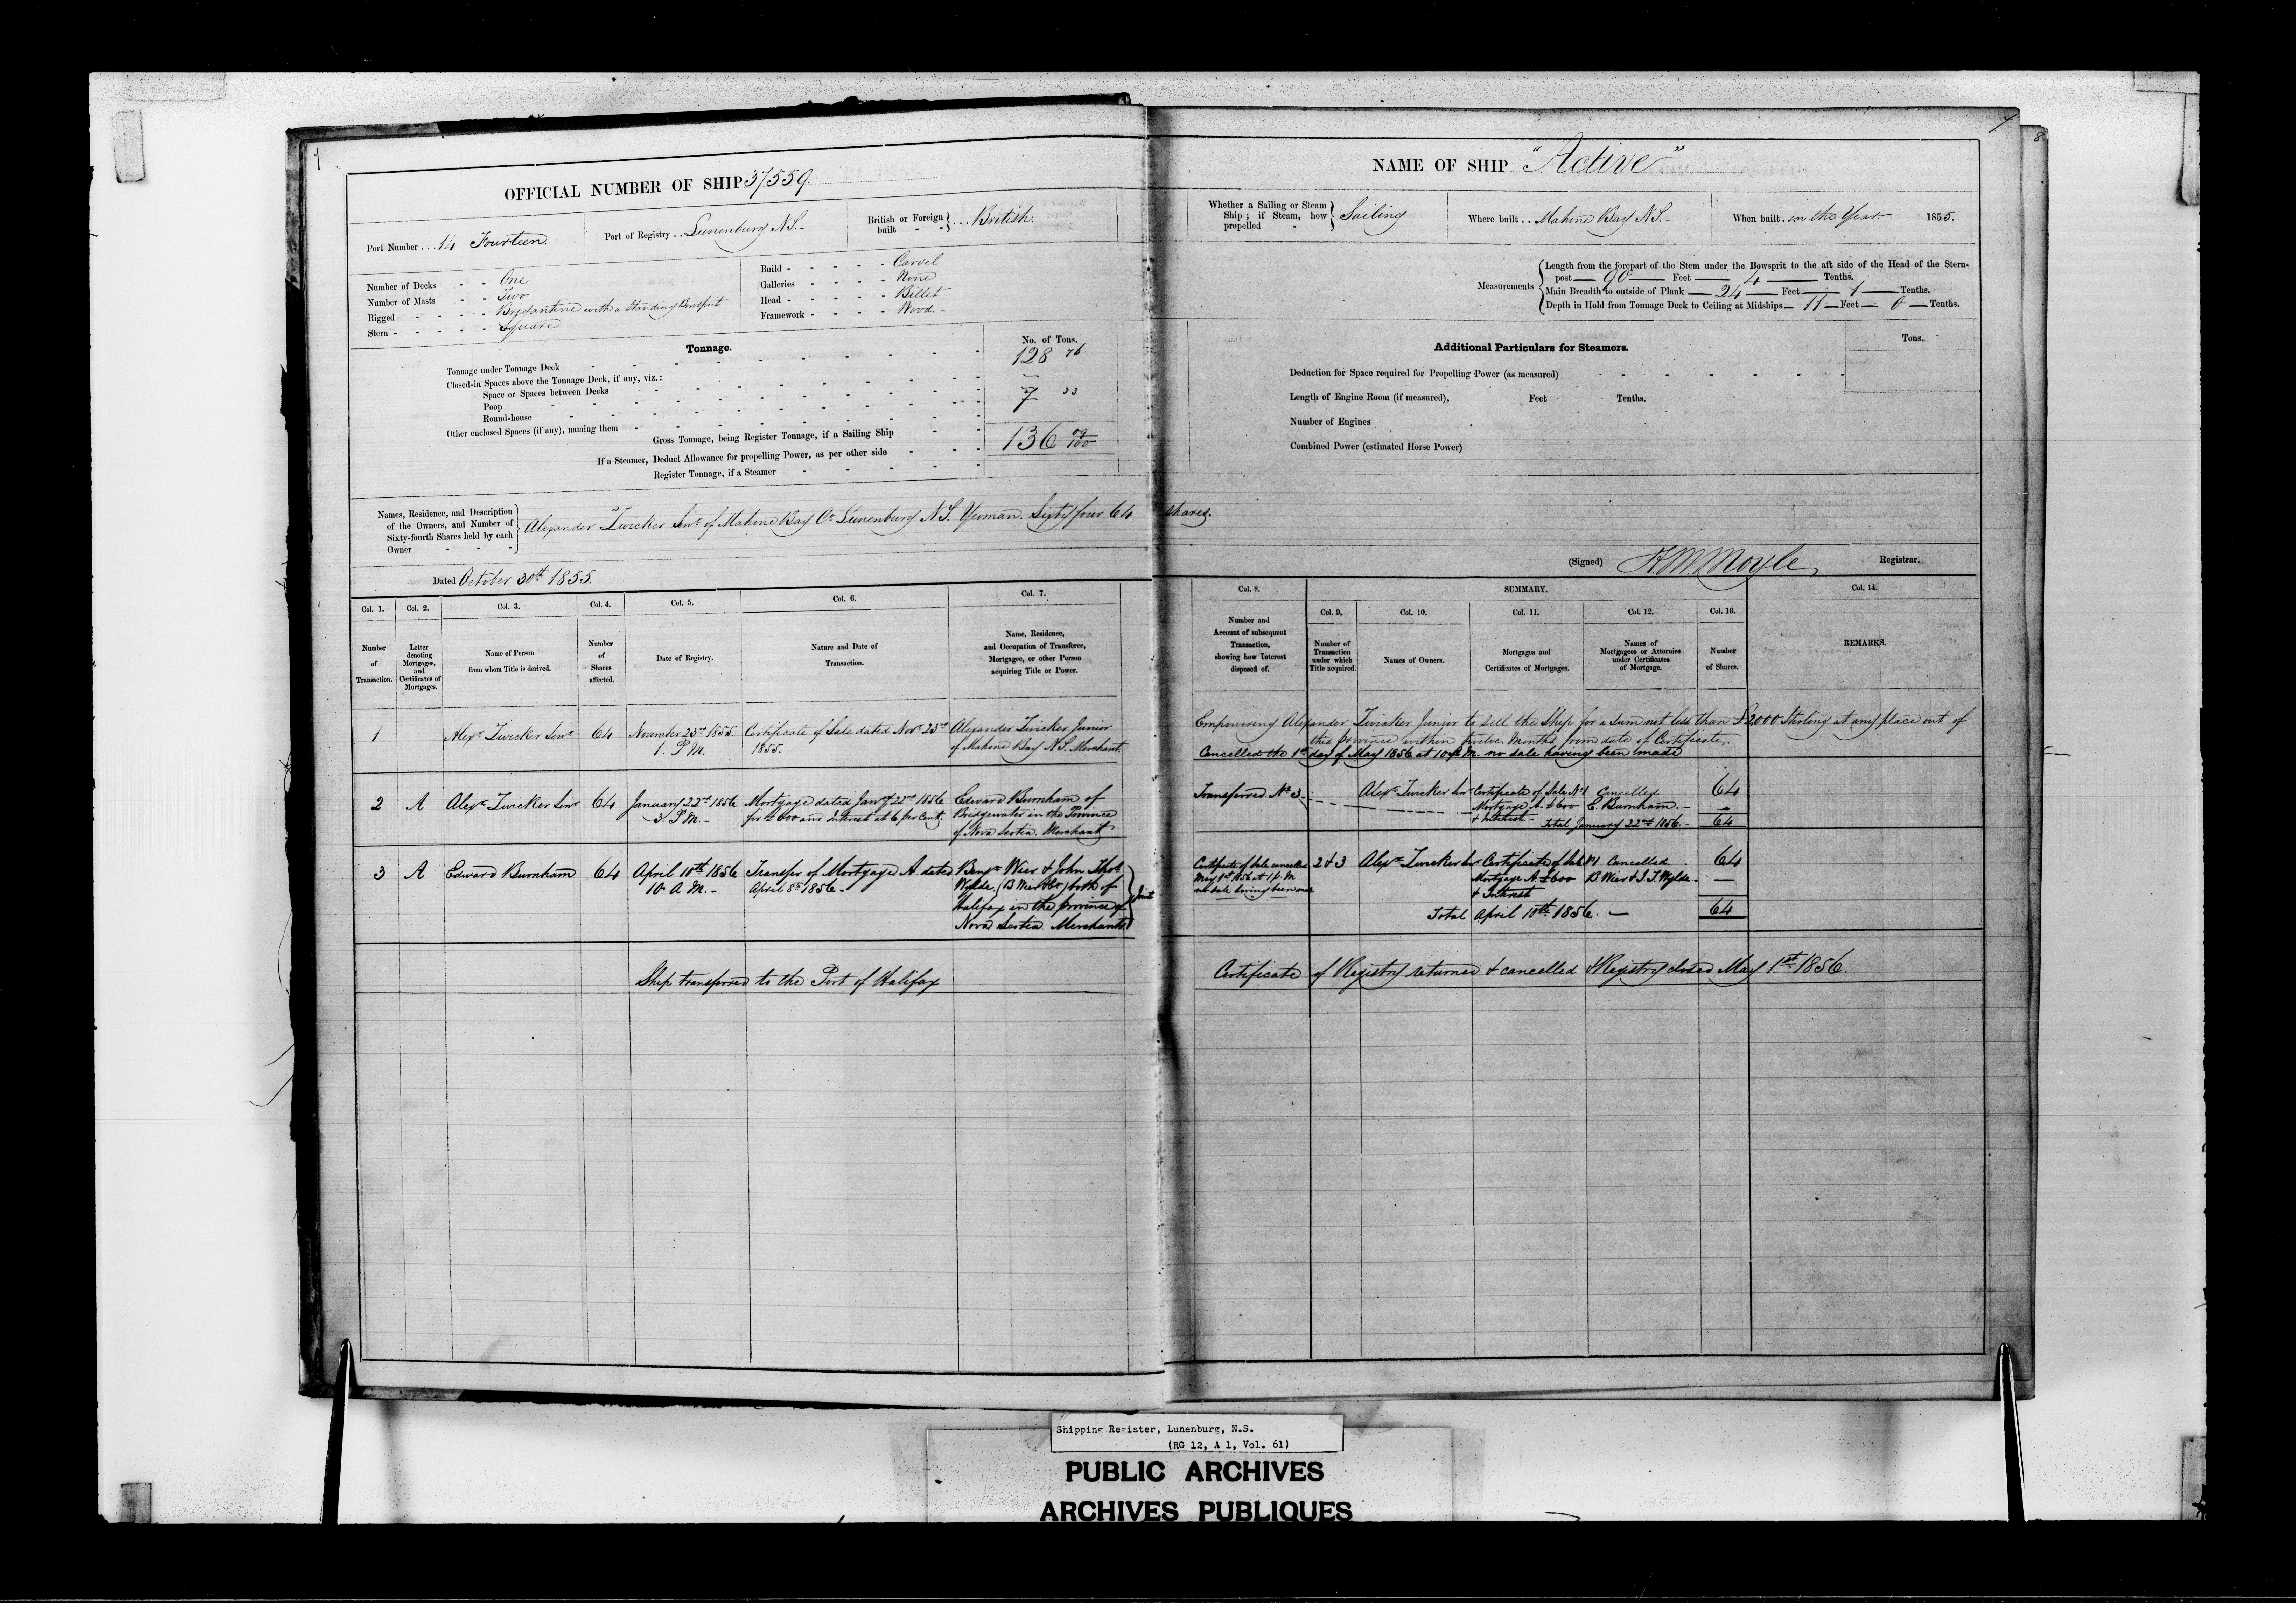 1
7
8
OFFICIAL NUMBER OF SHIP 37559.
NAME OF SHIP "Active"
Port Number . . . 14 Fourteen
Port of Registry . . Lunenburg N.S. -
British or Foreign built - - } . . . British.
Whether a Sailing or Steam Ship ; if Steam, how propelled - } Sailing
Where built . . Mahone Bay N.S. -
When built . . in the Year 1855.
Number of Decks - - One
Number of Masts - - Two
Rigged - - - - Brigantine with a Standing Bowsprit
Stern - - - - - Square
Build - - - - - Carvel
Galleries - - - - None
Head - - - - - Billet
Framework - - - - Wood. -
Measurements
Length from the forepart of the Stem under the Bowsprit to the aft side of the Head of the Stern-
post — 90 — Feet — 4 — Tenths.
Main Breadth to outside of Plank — 24 — Feet — 1 — Tenths.
Depth in Hold from Tonnage Deck to Ceiling at Midships — 11 — Feet — 0 — Tenths.
Tonnage.
No. of Tons.
Tonnage under Tonnage Deck 128 76
Closed-in Spaces above the Tonnage Deck, if any, viz. : —
Space or Spaces between Decks
Poop 7 33
Round-house
Other enclosed Spaces (if any), naming them
Gross Tonnage, being Register Tonnage, if a Sailing Ship 136 09/100
If a Steamer, Deduct Allowance for propelling Power, as per other side
Register Tonnage, if a Steamer
Additional Particulars for Steamers.
Tons.
Deduction for Space required for Propelling Power (as measured)
Length of Engine Room (if measured), Feet Tenths.
Number of Engines
Combined Power (estimated Horse Power)
Names, Residence, and Description
of the Owners, and Number of
Sixty-fourth Shares held by each
Owner
Alexander Zwicker Senr of Mahone Bay Co Lunenburg N.S. Yeoman. Sixty four 64 shares.
Dated October 30th 1855.
(Signed) H M Moyle Registrar.
SUMMARY.
Col. 1. Col. 2. Col. 3. Col. 4. Col. 5. Col. 6. Col. 7. Col. 8. Col. 9. Col. 10. Col. 11. Col. 12. Col. 13. Col. 14.
Number of Transaction.
Letter denoting Mortgages, and Certificates of Mortgages.
Name of Person from whom Title is derived.
Number of Shares affected.
Date of Registry.
Nature and Date of Transaction.
Name, Residence, and Occupation of Transferee, Mortgagee, or other Person acquiring Title or Power.
Number and Account of subsequent Transaction, showing how Interest disposed of.
Number of Transaction under which Title acquired.
Names of Owners.
Mortgages and Certificates of Mortgages.
Names of Mortgagees or Attornies under Certificates of Mortgage.
Number of Shares.
REMARKS.
1
Alexr Zwicker Senr
64
November 23rd 1855.
1. P.M.
Certificate of Sale dated Novr 23rd
1855.
Alexander Zwicker Junior
of Mahone Bay N.S. Merchant
Empowering Alexander Zwicker Junior to sell the Ship for a sum not less than £2000 Sterling at any place out of
this province within twelve Months from date of Certificate.
Cancelled the 1st day of May 1856 at 10 A.M. no sale having been made
2
A
Alexr Zwicker Senr
64
January 22nd 1856
3 P.M. -
Mortgage dated Jany 22nd 1856
for £600 and interest at 6 per Cent.
Edward Burnham of
Bridgewater in the Province
of Nova Scotia. Merchant
Transferred No 3
Alexr Zwicker Senr
Certificate of Sale No 1 Cancelled
64
Mortgage A. £600 E. Burnham. -
—
& Interest - Total January 22nd 1856. -
64
3
A
Edward Burnham
64
April 10th 1856
10 A.M. -
Transfer of Mortgage A dated
April 8th 1856 -
Benjn Wier & John Thos
Wylde, (B Wier & Co) both of
Halifax in the province of
Nova Scotia. Merchants
Joint
Certificate of Sale cancelled
May 1st 1856 at
no sale having been made
2 & 3
Alexr Zwicker Senr
Certificate of Sale No 1 Cancelled
64
Mortgage A. £600 B. Wier & J. T. Wylde. -
—
& Interest
Total April 10th 1856. —
64
Ship transferred to the Port of Halifax
Certificate of Registry returned & cancelled & Registry closed May 1st 1856.
Shipping Register, Lunenburg, N.S.
(RG 12, A 1, Vol. 61)
PUBLIC ARCHIVES
ARCHIVES PUBLIQUES